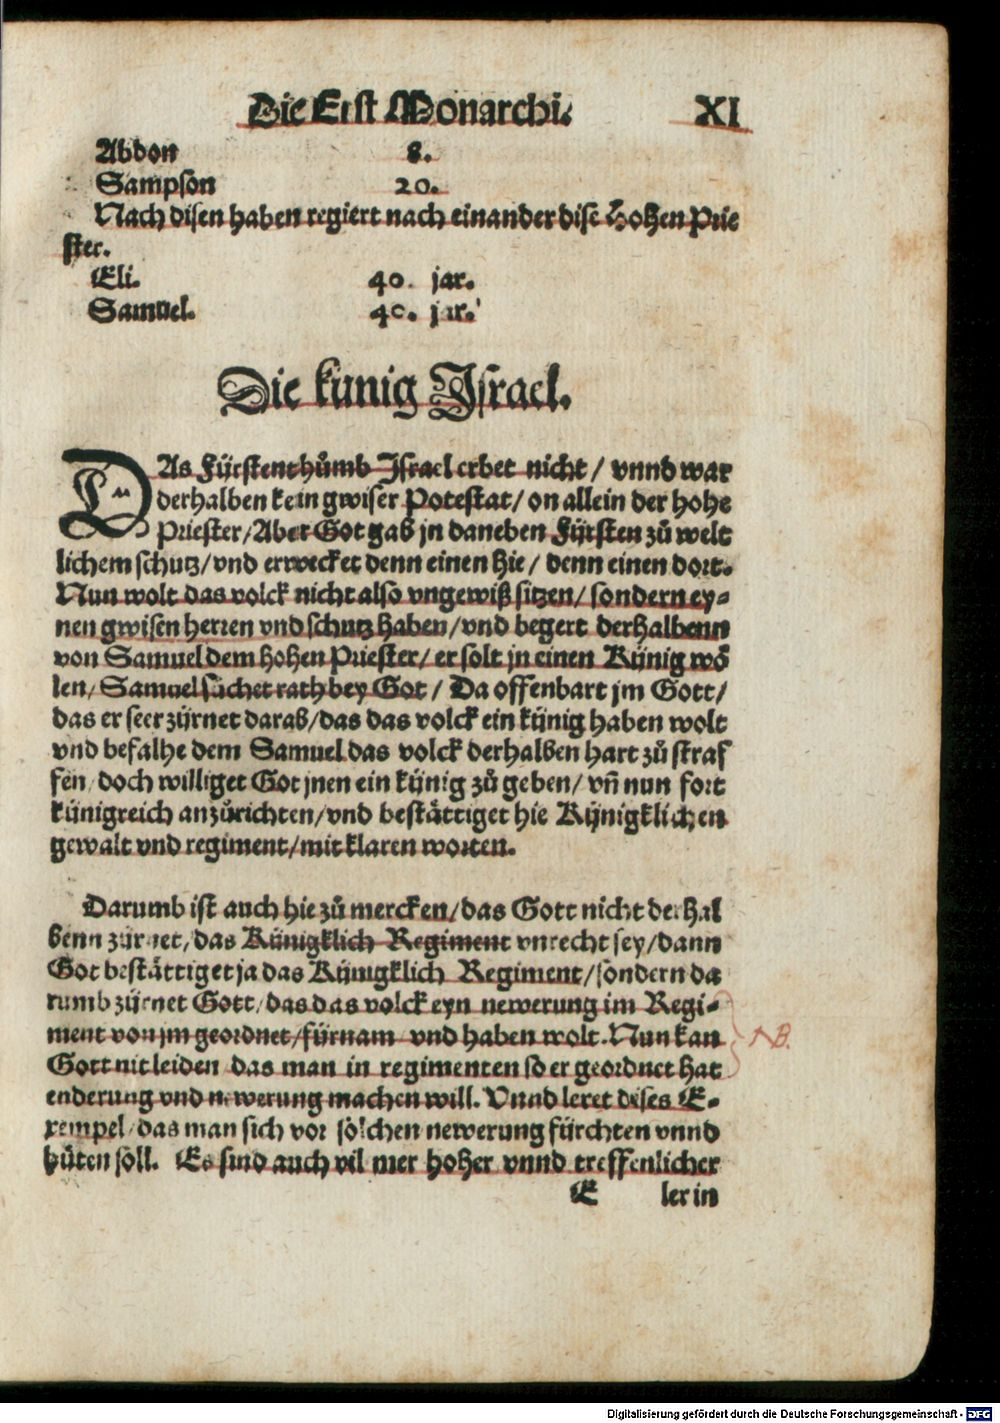 Die Erst Monarchi. XI
Abdon 8.
Sampson 20.
Nach disen haben regiert nach einander dise Hohen Prie
ster.
Eli. 40. jar.
Samuel. 40. jar.
Die künig Israel.
DAs Fürstenthůmb Israel erbet nicht / vnnd war
derhalben kein gwiser Potestat / on allein der hohe
Priester / Aber Got gab jn daneben Fürsten zů welt
lichem schutz / vnd erwecket denn einen hie / denn einen dort.
Nun wolt das volck nicht also vngewiß sitzen / sondern ey-
nen gwisen herren vnd schutz haben / vnd begert derhalbenn
von Samuel dem hohen Priester / er solt jn einen Künig wö
len / Samuel sůchet rath bey Got / Da offenbart jm Gott /
das er seer zürnet darab / das das volck ein künig haben wolt
vnd befalhe dem Samuel das volck derhalben hart zů straf
fen / doch williget Got jnen ein künig zů geben / vñ nun fort
künigreich anzůrichten / vnd bestättiget hie Künigklichen
gewalt vnd regiment / mit klaren worten.
Darumb ist auch hie zů mercken / das Gott nicht derhal
benn zürnet / das Künigklich Regiment vnrecht sey / dann
Got bestättiget ja das Künigklich Regiment / sondern da
rumb zürnet Gott / das das volck eyn newerung im Regi-
ment von jm geordnet / fürnam vnd haben wolt. Nun kan NB.
Gott nit leiden das man in regimenten so er geordnet hat
enderung vnd newerung machen will. Vnnd leret dises E-
xempel / das man sich vor sölchen newerung fürchten vnnd
hüten soll. Es sind auch vil mer hoher vnnd treffenlicher
E ler in
Digitalisierung gefördert durch die Deutsche Forschungsgemeinschaft - DFG